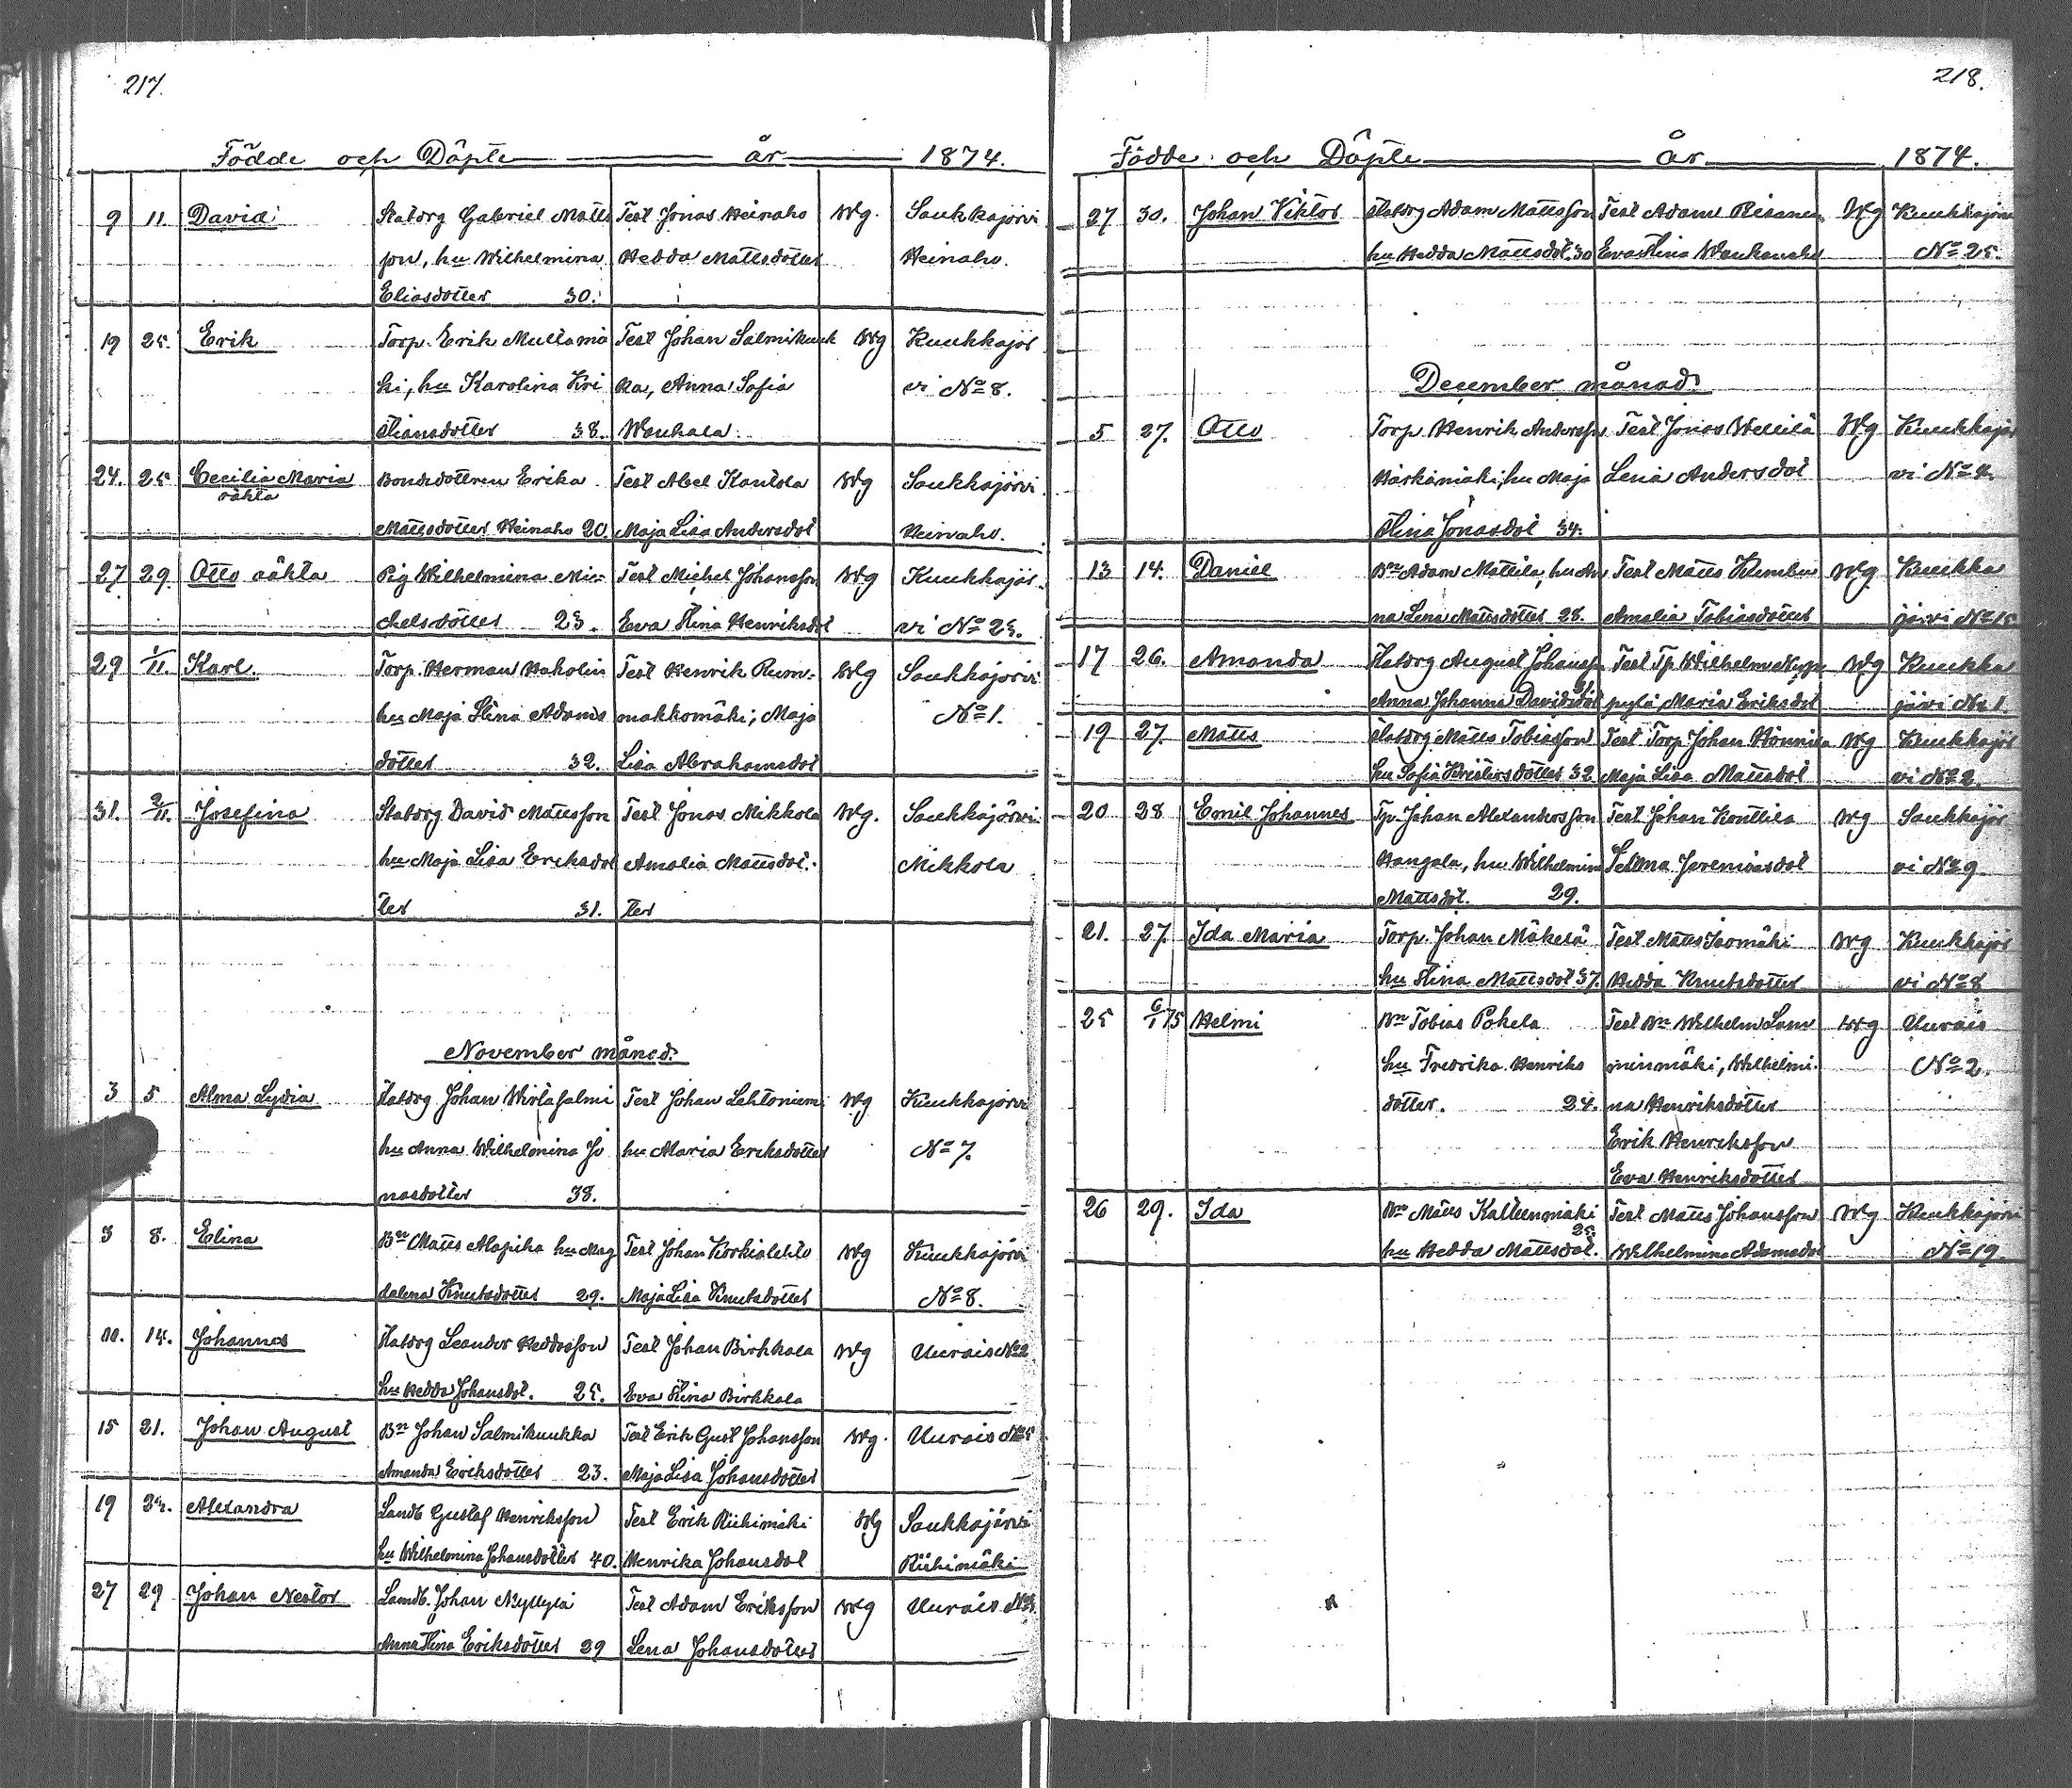 217.
Födde och Döpte år 1874.
9 11. David Statorg Gabriel Matts Test Jonas Heinaho Wg. Saukkajärvi
son, hu Wilhelmina Hedda Mattsdotter Heinaho.
Eliasdotter 30.
19 25. Erik Torp. Erik Multamä Test Johan Salmikuuk Wg Kuukkajär
ki, hu Karolina Kri ka, Anna Sofia vi No 8.
stiansdotter 38. Wauhala.
24. 25 Cecilia Maria Bondedottren Erika Test Abel Kantola Wg Saukkajärvi
oäkta
Mattsdotter Heinaho 20. Maja Lisa Andersdot Heinaho.
27 29. Otto oäkta Pig Wilhelmina Mi- Test Michel Johansson Wg Kuukkajär
chelsdotter 23. Eva Stina Henriksdot vi No 25.
29 1/11. Karl. Torp. Herman Hakolin Test Henrik Rum- Wg Saukkajärvi
hu Maja Stina Adams makkomäki, Maja No 1.
dotter 32. Lisa Abrahamsdot
31. 2/11. Josefina Statorg David Mattsson Test Jonas Mikkola Wg. Saukkajärvi
hu Maja Lisa Eriksdot Amalia Mattsdot. Mikkola
ter 31. ter
November månad.
3 5 Alma Lydia Statorg Johan Wirtasalmi Test Johan Lehtoniemi Wg Kuukkajärvi
hu Anna Wilhelmina Jo hu Maria Eriksdotter No 7.
nasdotter 38.
3 8. Elina Bn Matts Alapiha hu Mag Test Johan Korkialehto Wg Kuukkajärvi
dalena Knutsdotter 29. Maja Lisa Knutsdotter No 8.
14. Johannes Statorg Leander Heddasson Test Johan Birkkala Wg Uurais No 2
hu Hedda Johansdot. 25. Eva Stina Birkkala
15 21. Johan August Bn Johan Salmikuukka Test Erik Gust Johansson Wg. Uurais
Amanda Eriksdotter 23. Maja Lisa Johansdotter
19 Alexandra Landb Gustaf Henriksson Test Erik Riihimäki Wg Saukkajärvi
hu Wilhelmina Johansdotter 40. Henrika Johansdot Riihimäki
27 29 Johan Nestor Landb. Johan Nyllylä Test Adam Eriksson Wg Uurais
Anna Stina Eriksdotter 29 Lena Johansdotter
218.
Födde och Döpte År 1874.
27 30. Johan Viktor Statorg Adam Mattsson Test Adam Risanen Wg Kuukkajärvi
hu Hedda Mattsdot. 30 Eva Stina Waukanaho No 25.
December månad.
5 27. Otto Torp Henrik Andersson Test Jonas Wellilä Wg Kuukkajär
Härkämäki, hu Maja Lena Andersdot vi No
Stina Jonasdot 34.
13 14. Daniel Bn Adam Mattila, hu An Test Matts Wg Kuukka
na Lena Mattsdotter 28. Amalia Tobiasdotter järvi No 15
17 26. Amanda Statorg August Johansson Test Tp Wilhelm Wg Kuukka
Anna Johanna Davidsdot Maria Eriksdot järvi No 1.
19 27. Matts Statorg Matts Tobiasson Test Torp Johan Hännika Wg Kuukkajär
hu Sofia Kristersdotter 32 Maja Lisa Mattsdot vi No 2.
20 28 Emil Johannes Tp. Johan Alexandersson Test Johan Konttila Wg Saukkajär
Hangala, hu Wilhelmina Selma Jeremiasdot vi No 9
Mattsdot. 29.
21. 27. Ida Maria Torp. Johan Mäkelä Test Matts Isomäki Wg Kuukkajär
hu Stina Mattsdot 37. Hedda Knutsdotter vi No 8
25 6/1 75 Helmi Bn Tobias Pohela Test Bn Wilhelm Lam Wg Uurais
hu Fredrika Henriks minmäki, Wilhelmi- No 2.
dotter. 24. na Henriksdotter
Erik Henriksson
Eva Henriksdotter
26 29. Ida Bn Matts Kalliinmäki Test Matts Johansson Wg Kuukkajärvi
25.
hu Hedda Mattsdot. Wilhelmina Adamsdot No 19.